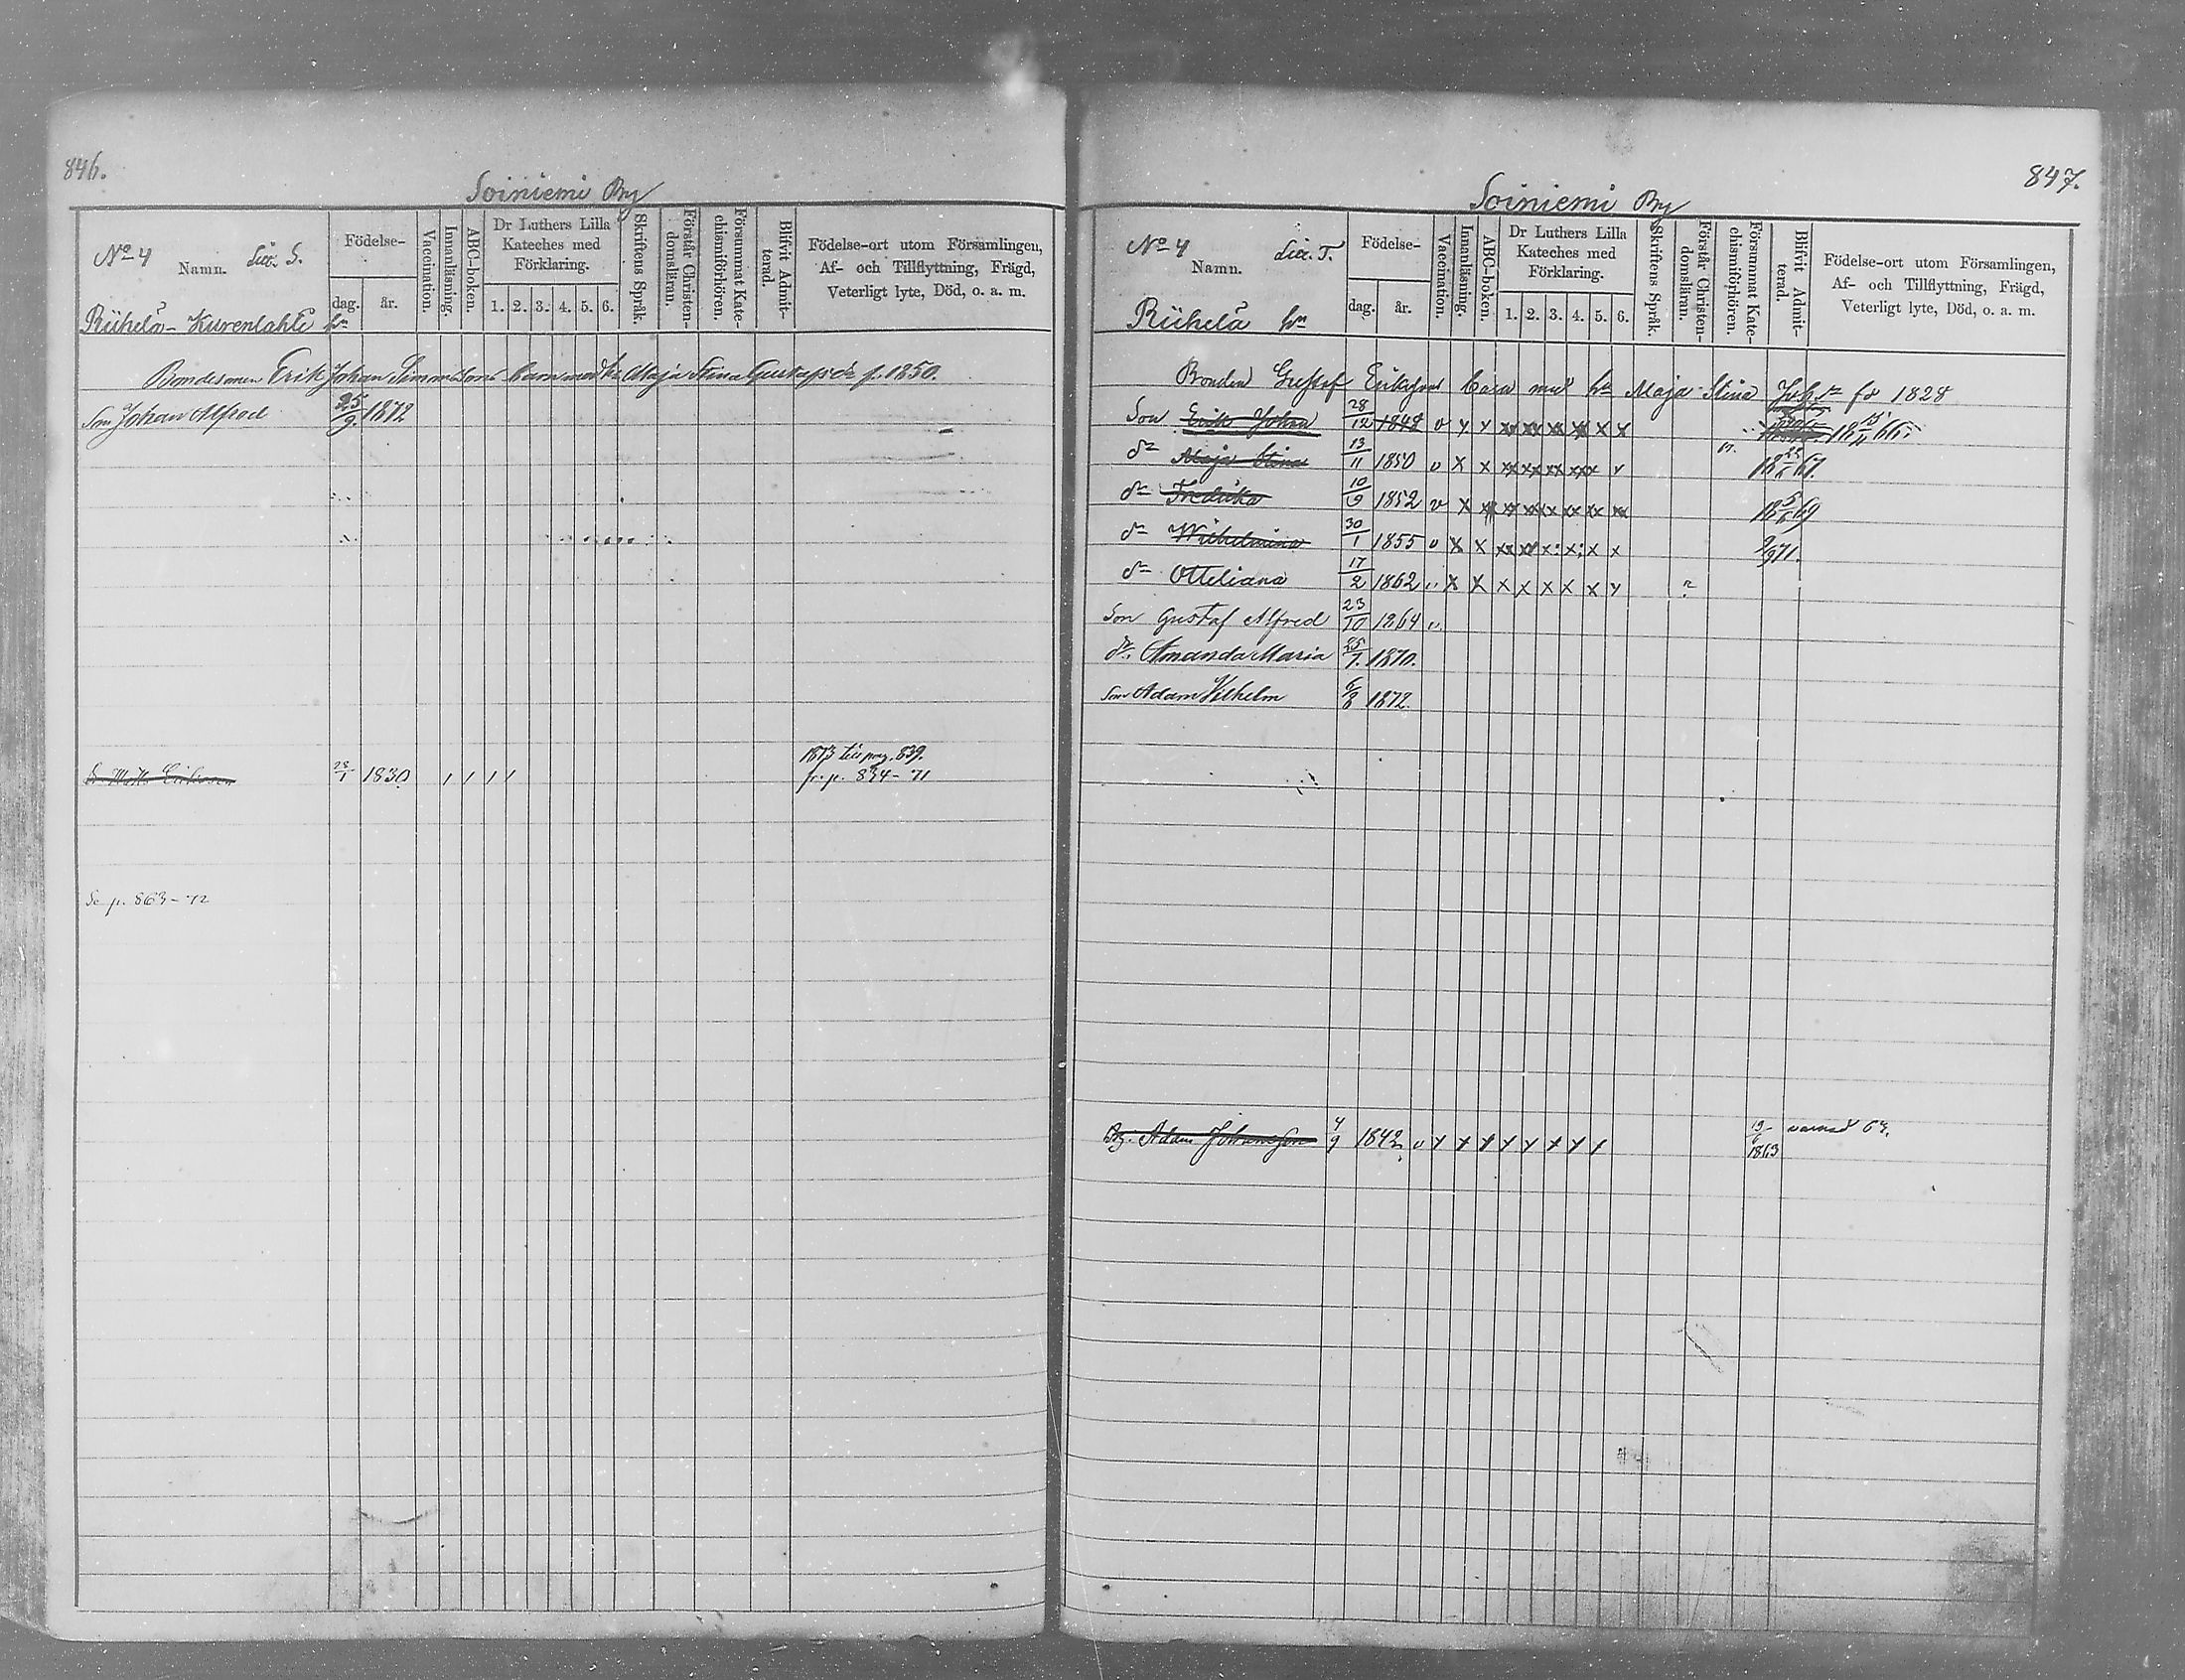 846.
Soiniemi By
No 4 Litt. S.
Namn.
Födelse-
dag.
år.
Vaccination.
Innanläsning.
ABC-boken.
Dr Luthers Lilla
Kateches med
Förklaring.
1. 2. 3. 4. 5. 6.
Skriftens Språk.
Förstår Christen-
domsläran.
Försummat Kate-
chismiförhören.
Blifvit Admit-
terad.
Födelse-ort utom Församlingen,
Af- och Tillflyttning, Frägd,
Veterligt lyte, Död, o. a. m.
Riihelä-Kurenlahti hn
Bondesonen Erik Johan Simonssons barn med h. Maja Stina Gustafsdr f. 1850.
Son Johan Alfred 25/9. 1872
1873 till pag. 839.
Matts Eriksson 28/1 1830 / / / / fr. p. 834-71
Se p. 863-72
847.
Soiniemi By
No 4 Litt. T.
Namn.
Födelse-
dag.
år.
Vaccination.
Innanläsning.
ABC-boken.
Dr Luthers Lilla
Kateches med
Förklaring.
1. 2. 3. 4. 5. 6.
Skriftens Språk.
Förstår Christen-
domsläran.
Försummat Kate-
chismiförhören.
Blifvit Admit-
terad.
Födelse-ort utom Församlingen,
Af- och Tillflyttning, Frägd,
Veterligt lyte, Död, o. a. m.
Riihelä hn
Bonden Gustaf Eriksons barn med h. Maja Stina Johsdr fö 1828
Son Erik Johan 28/12 1848 v x x xx xx xx xx x x 18 15/11 66.
dr Maja Stina 13/11 1850 v x x xx xx xx xx x 18 67.
dr Fredrika 10/9 1852 v x xx xx xx xx xx xx 18 5/6 69
dr Wilhelmina 30/1 1855 v x x xx xx x x x x 2/9 71.
dr Otteliana 17/2 1862 x x x x x x x x
Son Gustaf Alfred 23/10 1864
dr. Amanda Maria 25/1. 1870.
Son Adam Vilhelm 6/8 1872.
Adam Johansson 4/9 1842 v x x x x x x x x 13/6 1863